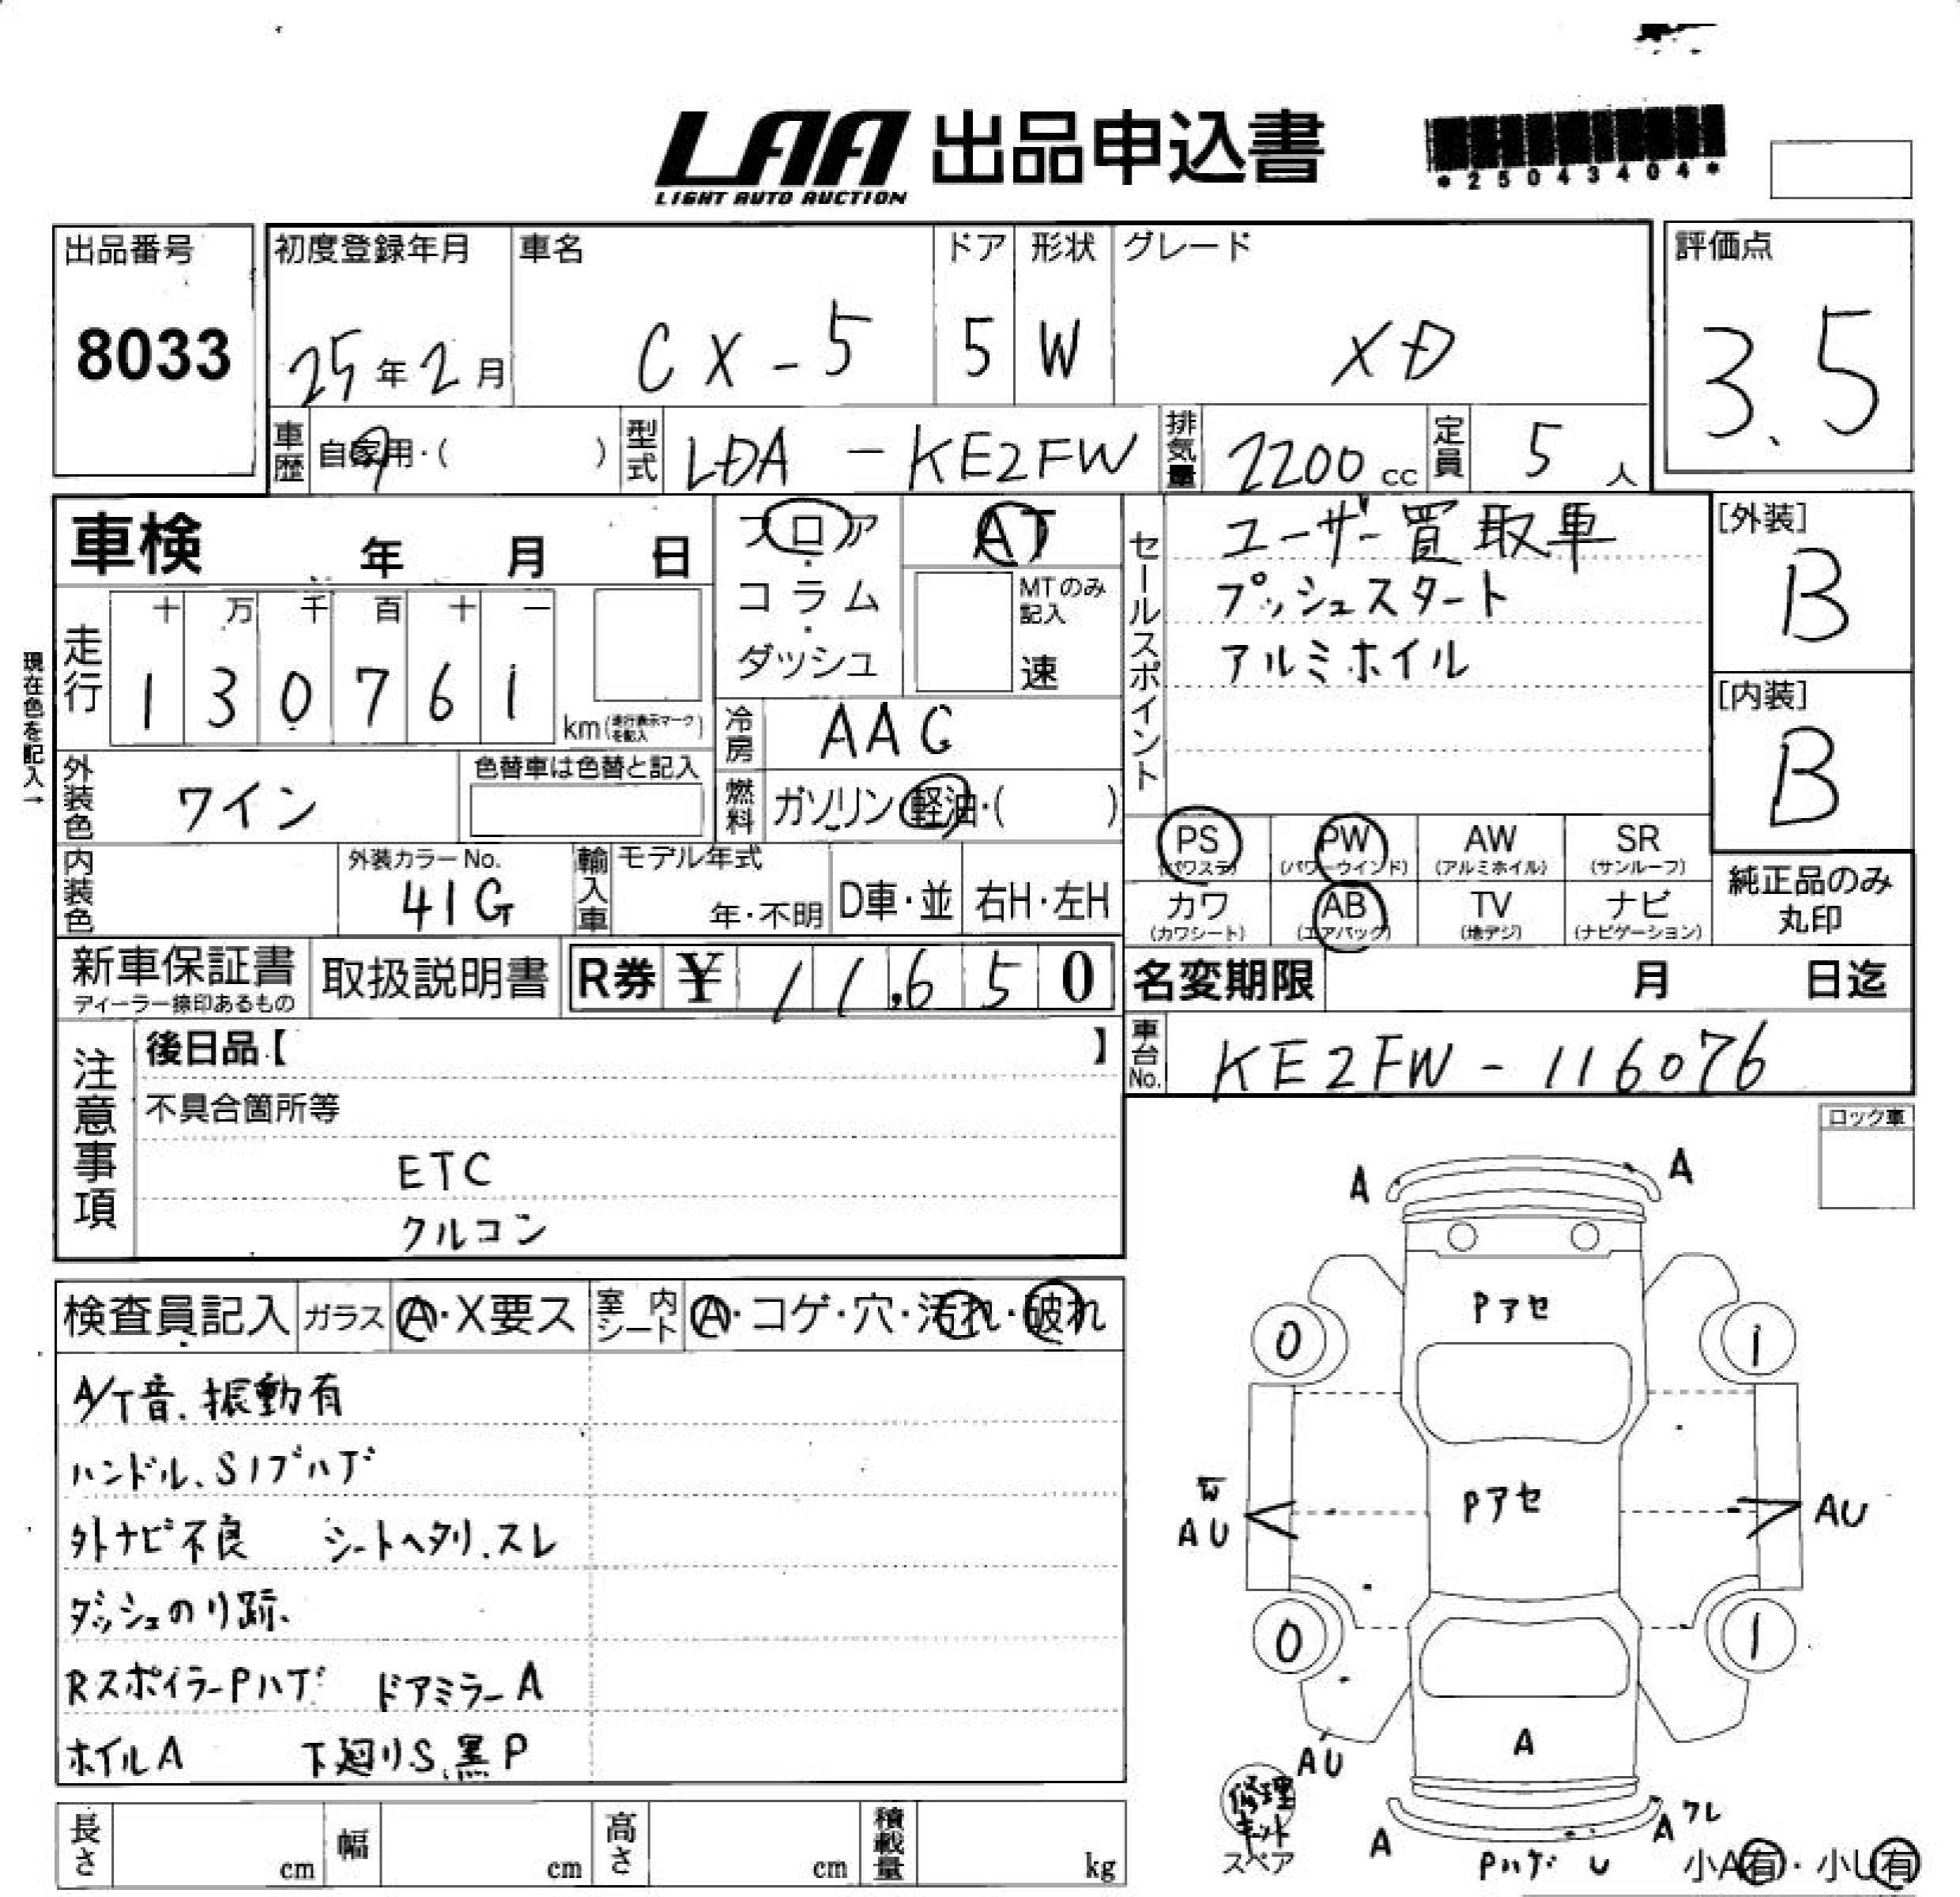 LAA 出品申込書
LIGHT AUTO AUCTION
*25043404*
出品番号
8033
初度登録年月
25年2月
車名
CX-5
ドア
5
形状
W
グレード
XD
評価点
3.5
車歴
自家用・( )
型式
LDA-KE2FW
排気量
2200cc
定員
5人
車検 年 月 日
フロア・コラム・ダッシュ
AT
MTのみ記入
速
現在色を記入→
走行
十万千百十一
130761
km(走行表示マークを記入)
冷房
AAC
外装色
ワイン
色替車は色替と記入
燃料
ガソリン・軽油・( )
内装色
外装カラーNo.
41G
輸入車
モデル年式
年・不明
D車・並
右H・左H
セールスポイント
ユーザー買取車
プッシュスタート
アルミホイル
[外装]
B
[内装]
B
PS (パワステ)
PW (パワーウインド)
AW (アルミホイル)
SR (サンルーフ)
カワ (カワシート)
AB (エアバック)
TV (地デジ)
ナビ (ナビゲーション)
純正品のみ
丸印
新車保証書
ディーラー捺印あるもの
取扱説明書
R券 ¥11,650
名変期限 月 日迄
車台No.
KE2FW-116076
注意事項
後日品【 】
不具合箇所等
ETC
クルコン
ロック車
検査員記入
ガラス A・X要ス
室内シート A・コゲ・穴・汚れ・破れ
A/T音、振動有
ハンドル、Sノブハゲ
外ナビ不良 シートヘタリ、スレ
ダッシュのり跡、
RスポイラーPハゲ ドアミラーA
ホイルA 下廻りS、黒P
A A
Pアセ
0 1
Pアセ
W
AU AU
0 1
A
AU
修理キット
スペア
A A ワレ
Pハゲ U
小A有・小U有
長さ cm
幅 cm
高さ cm
積載量 kg